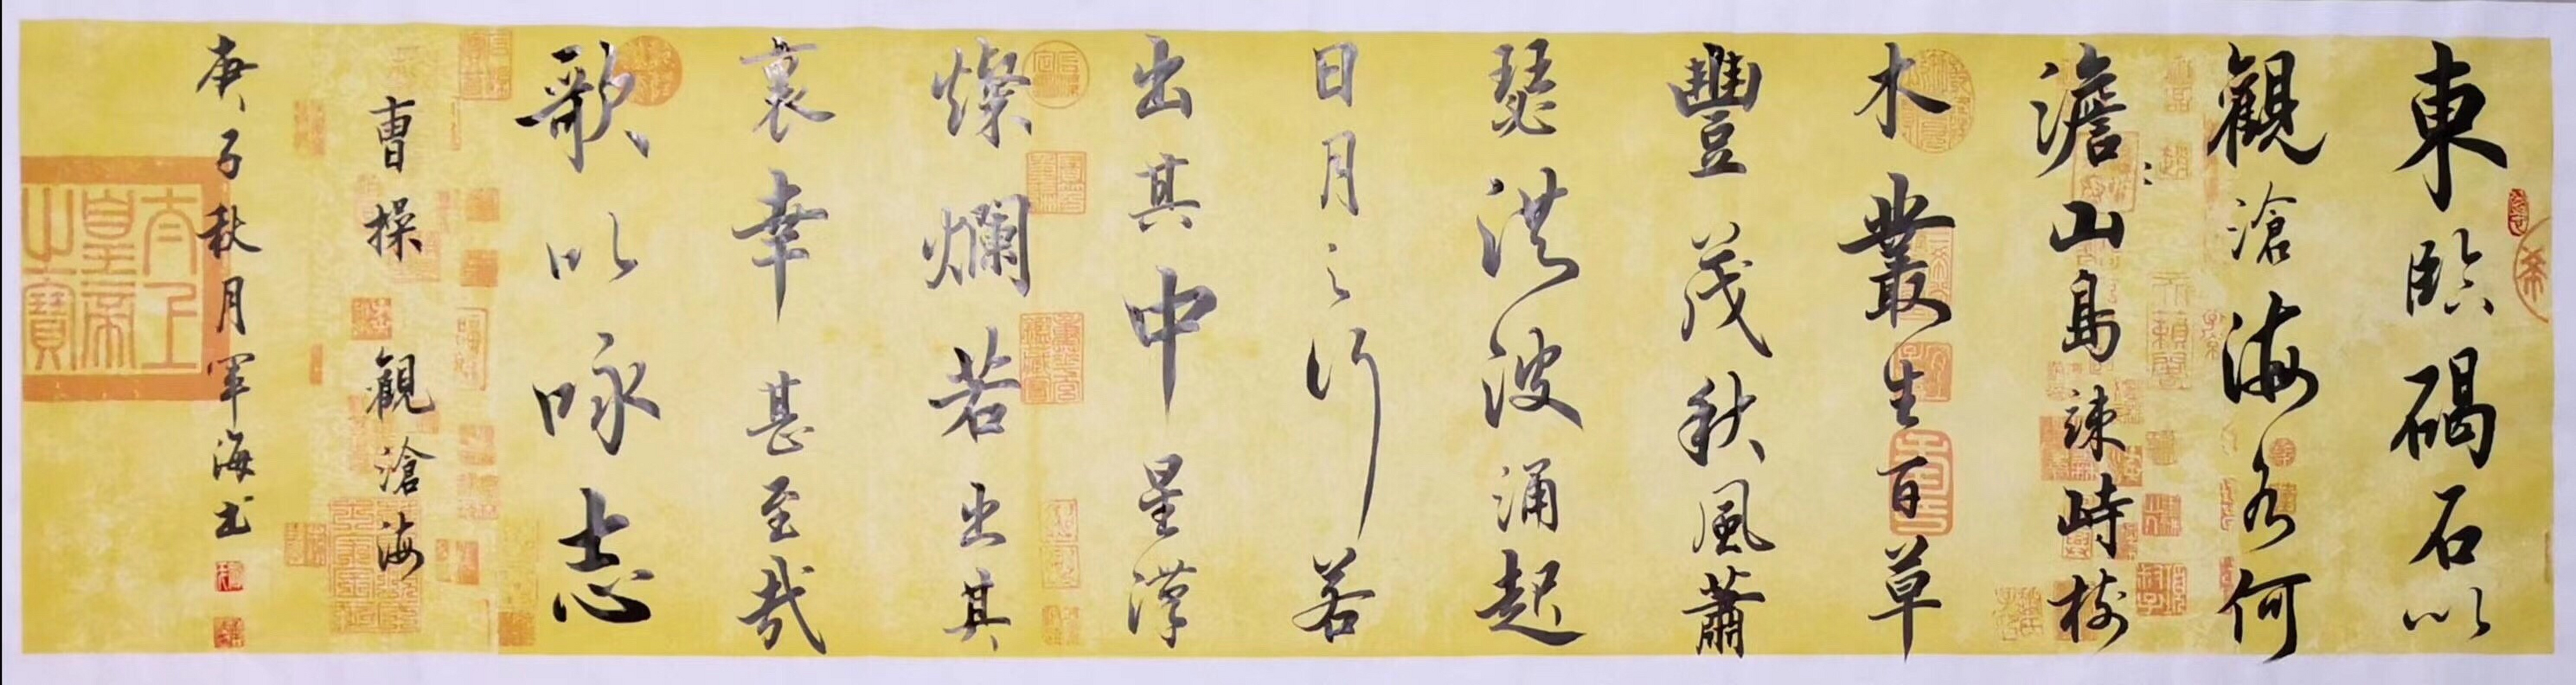 東臨碣石以
觀滄海水何
澹〻山島竦峙樹
木叢生百草
豐茂秋風蕭
瑟洪波涌起
日月之行若
出其中星漢
燦爛若出其
裏幸甚至哉
歌以咏志
曹操觀滄海
庚子秋月軍海书
太上
皇帝
山寶